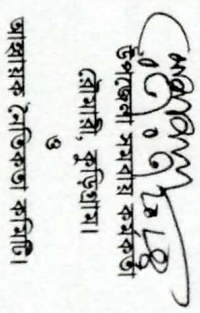 উপজেলা সমবায় কর্মকর্তা
রৌমারী, কুড়িগ্রাম।
ও
আহবায়ক নৈতিকতা কমিটি।